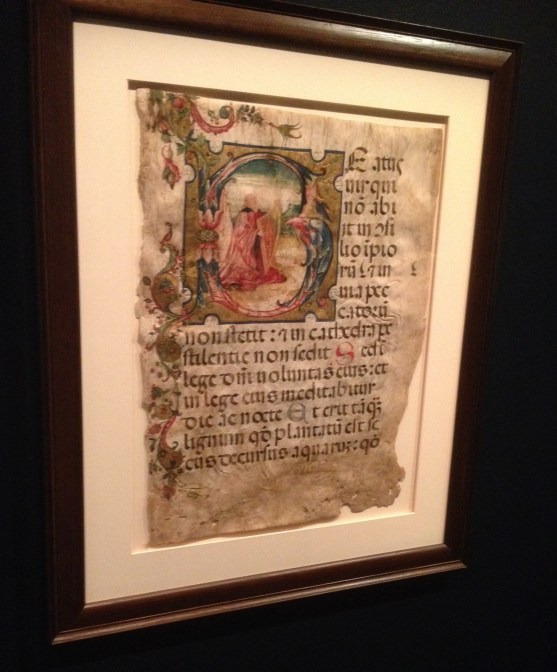 BEatus
uir qui
nō abi
it in ꝯsi
lio īpio
rū & in
uia pec
catorū
non stetit: & in cathedra pe
stilentie non sedit Sed ī
lege dn̄i uoluntas eius: et
in lege eius meditabitur
die ac nocte Et erit tāq̄
lignum qd̄ plantatū est se
cus decursus aquaꝝ: qd̄